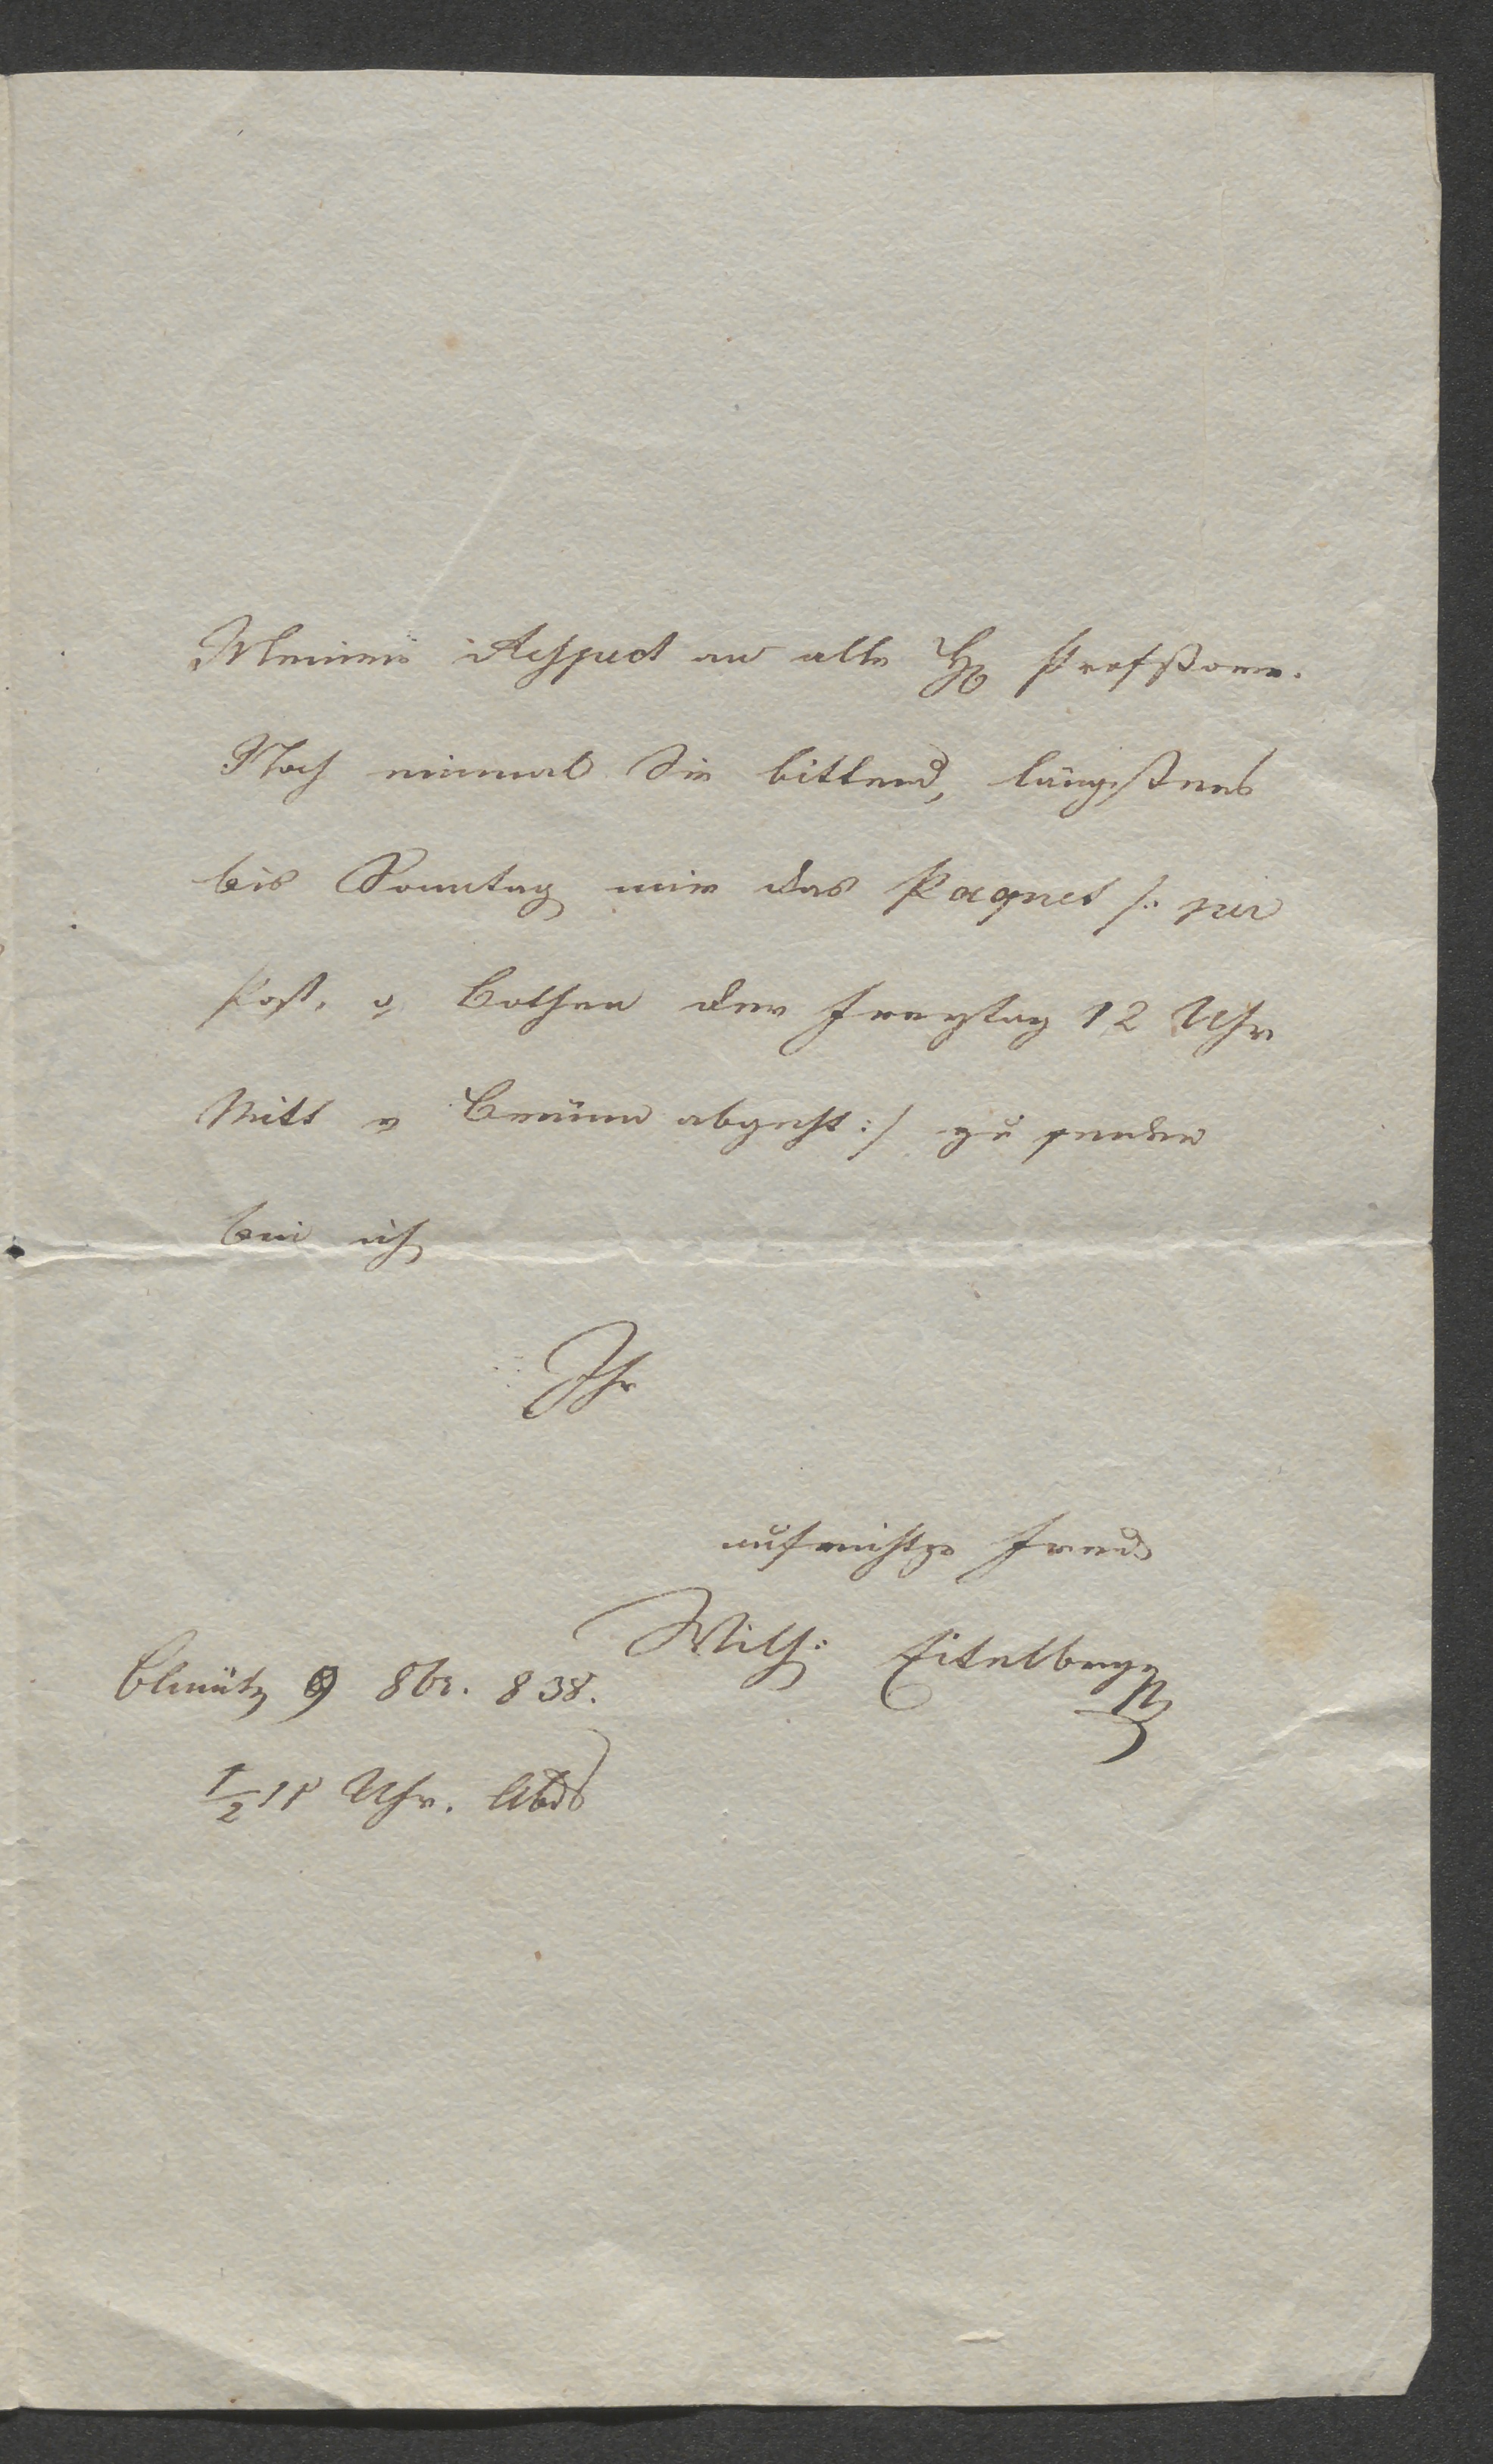 Meinen Respect an alle H Profeßoren.
Noch einmal Sie bittend, längstens
bis Sonntag mir das Paquet /: per
Post, o. Bothen der Freytag 12 Uhr
Mitt v Brünn abgeht :/ zu senden
bin ich
Ihr
aufrichtge Freund
Wilh: Eitelberg
Olmütz 9 8br. 838.
1/2 11 Uhr. Abds